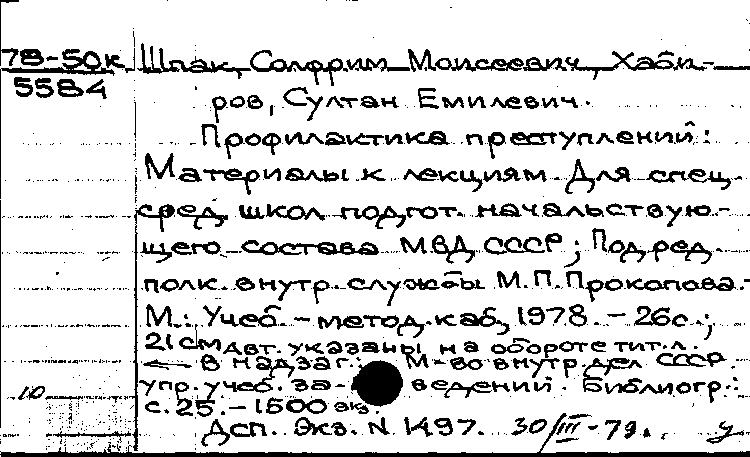 78-50к Шпак, Солфрим Моисеевич, Хаби-
5584
ров, Султан Емилевич.
Профилактика преступлений:
Материалы к лекциям Для спец.
сред. школ подгот. начальствую-
щего состава МВД СССР; Под ред.
полк. внутр. службы М.П.Прокопова.-
М.: Учеб.-метод. каб., 1978. - 26с.;
21см Авт. указаны на обороте тит.л.
— В надзаг.: М-во внутр. дел СССР.
упр. учеб. за- ведений. Библиогр.:
10
с.25. - 1500 экз.
Дсп. Экз. N 1497. 30/III-79г.